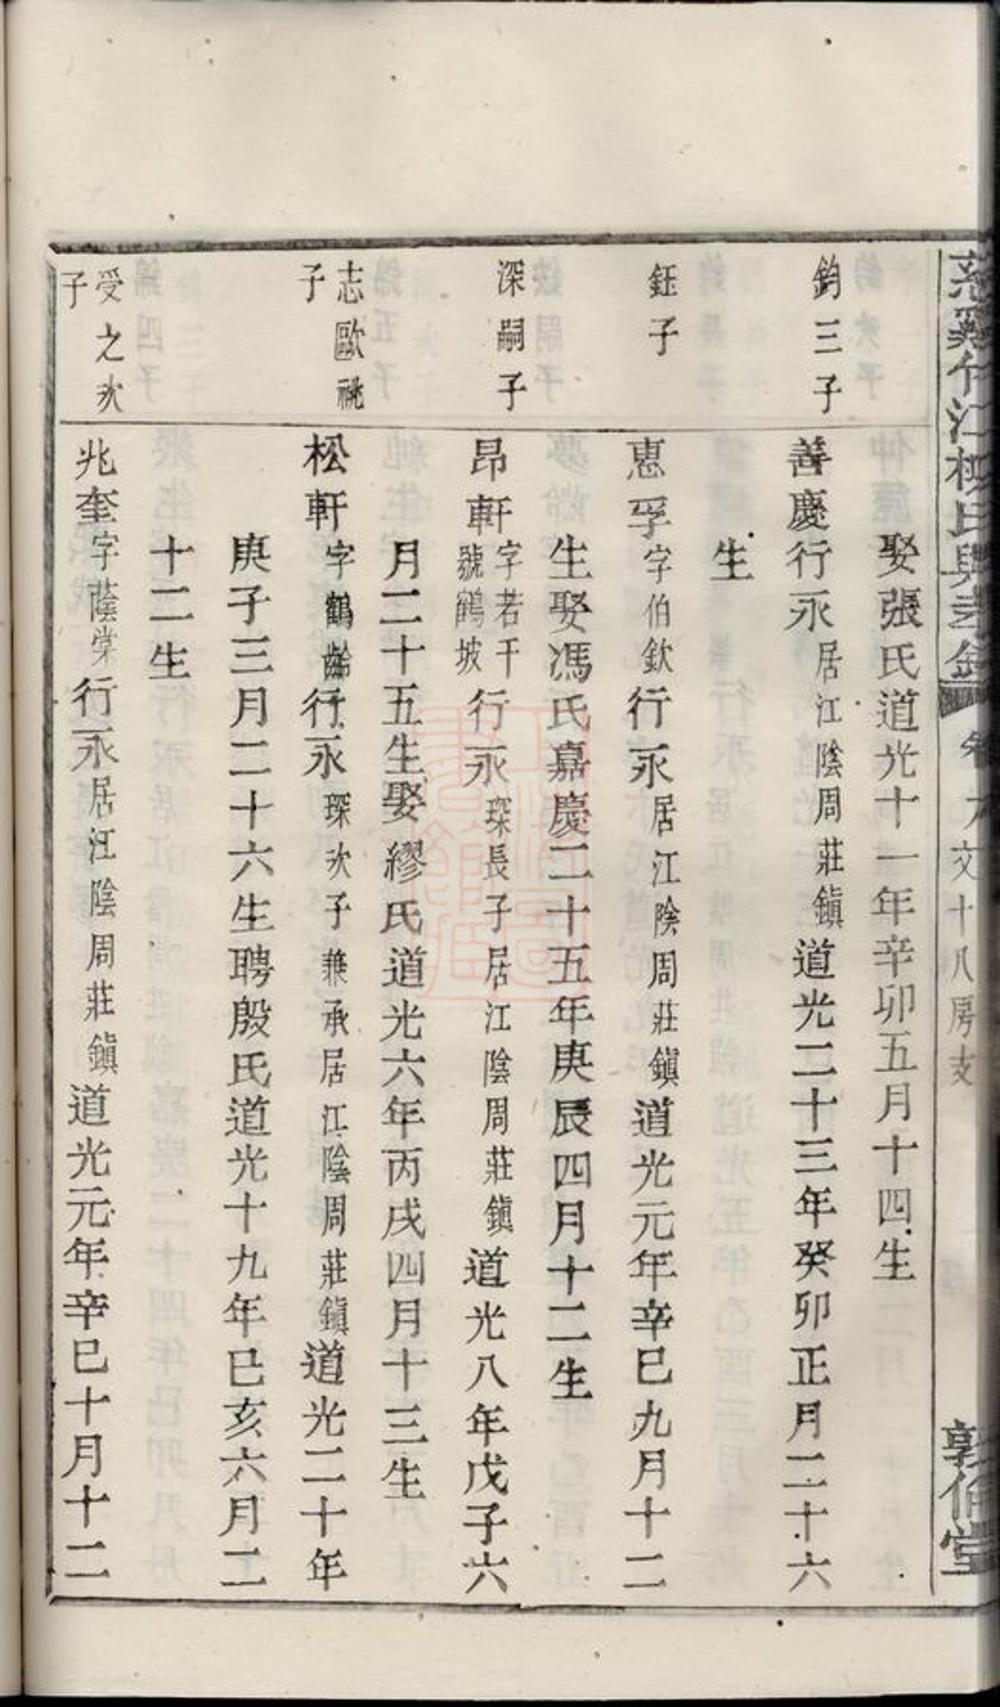 慈谿竹江楊氏與志錄
文十八房支
敦倫堂
娶張氏道光十一年辛卯五月十四生
鈞三子
善慶行永居江陰周莊鎮道光二十三年癸卯正月二十六
生
鈺子
惠孚字伯欽行永居江陰周莊鎮道光元年辛巳九月十二
生娶馮氏嘉慶二十五年庚辰四月十二生
深嗣子
昂軒字若干
號鶴坡
行永琛長子居江陰周莊鎮道光八年戊子六
月二十五生娶繆氏道光六年丙戌四月十三生
志歐祧
子
松軒字鶴齡行永琛次子兼承居江陰周莊鎮道光二十年
庚子三月二十六生聘殷氏道光十九年已亥六月二
十二生
受之次
子
兆奎字蔭棠行永居江陰周莊鎮道光元年辛巳十月十二